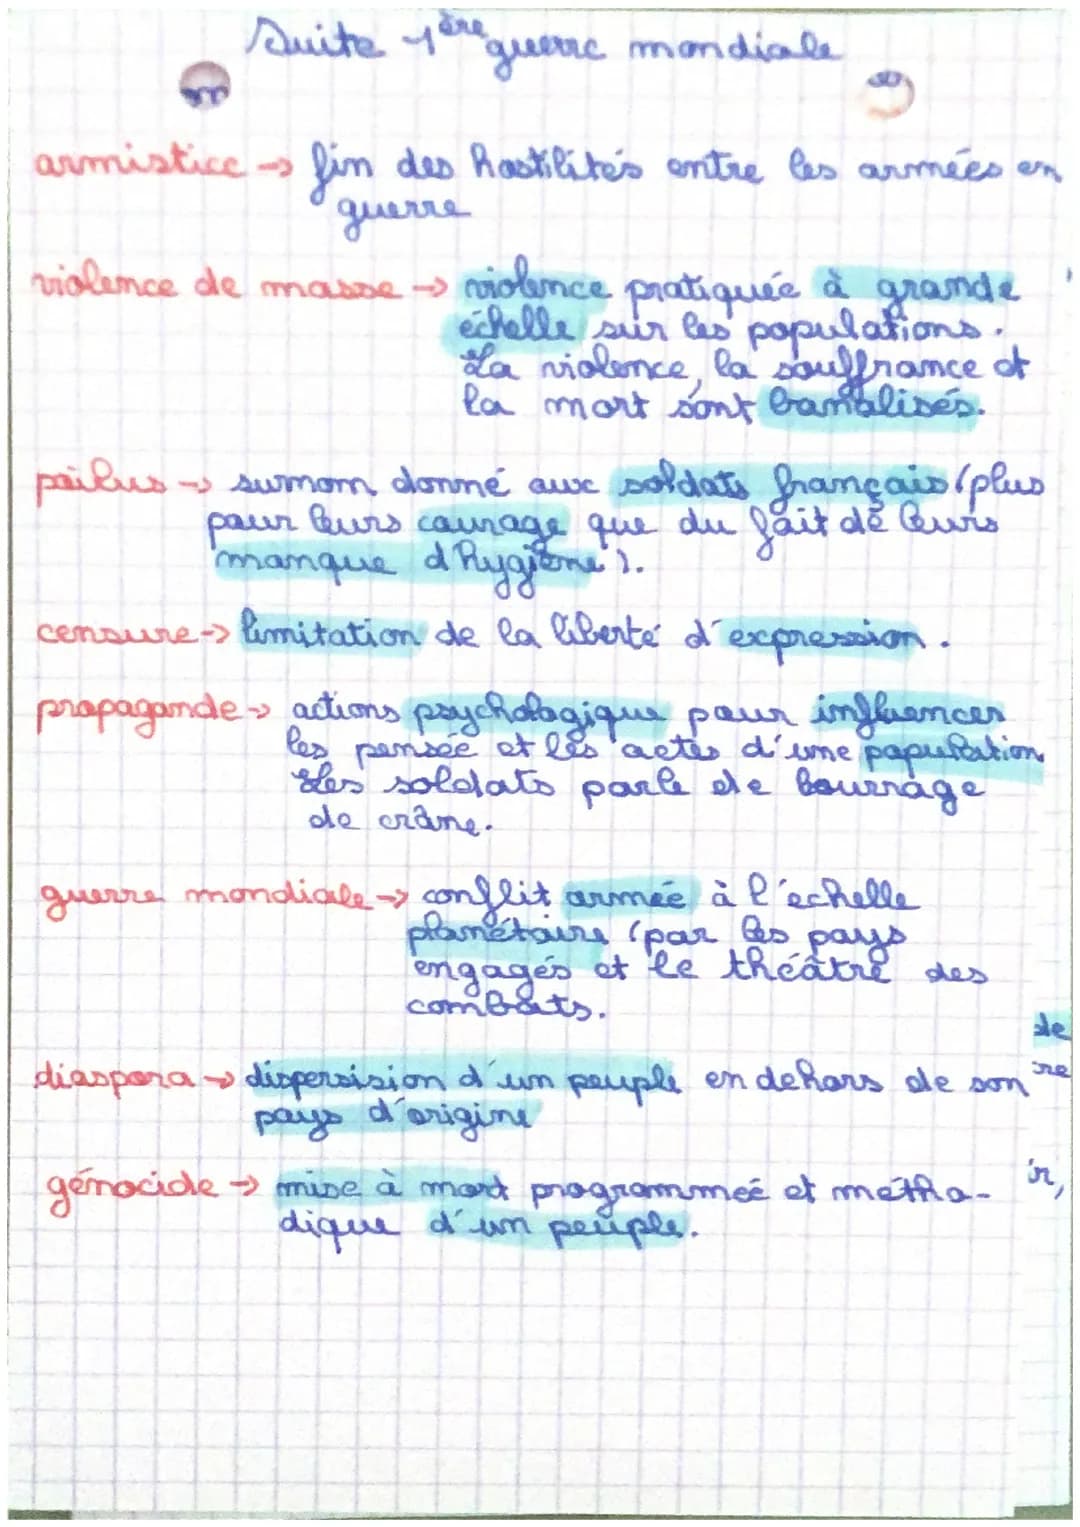 Suite 1ère guerre mondiale
armistice → fin des hostilités entre les armées en
guerre
violence de masse → violence pratiquée à grande
échelle sur les populations.
La violence, la souffrance et
la mort sont banalisés.
poilus → surnom donné aux soldats français (plus
pour leurs courage que du fait de leurs
manque d'hygiène).
censure → limitation de la liberté d'expression.
propagande → actions psychologique pour influencer
les pensée et les actes d'une population
Les soldats parle de bourrage
de crâne.
guerre mondiale → conflit armée à l'échelle
planétaire (par les pays
engagés et le théâtre des
combats.
de
diaspora → dispersision d'un peuple en dehors de son
re
pays d'origine
génocide → mise à mort programmée et métho-
ir,
dique d'un peuple.